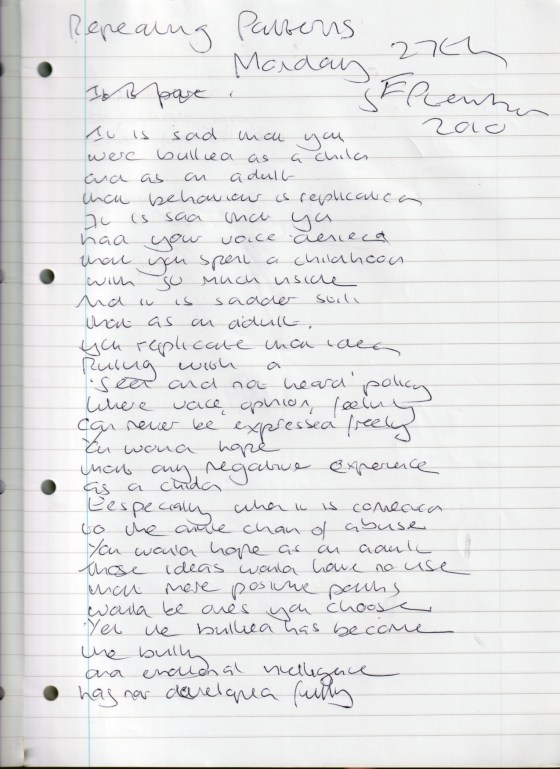 Repeating Patterns
Monday 27th
September
2010
It is
It is sad that you
were bullied as a child
and as an adult
that behaviour is replicated
It is sad that you
had your voice denied
that you spent a childhood
with so much inside
And it is sadder still
that as an adult,
you replicate that idea
Ruling with a
'seen and not heard' policy
Where voice, opinion, feeling
can never be expressed freely
You would hope
that any negative experience
as a child
Eespecially when it is connected
to the chain of abuse
You would hope as an adult
those ideas would have no use
that more positive paths
would be ones you choose
Yet the bullied has become
the bully
and emotional intelligence
has not developed fully